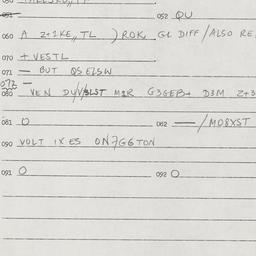 051 052 QU
060 A Z+1KE,, TL ) ROK, GL DIFF / ALSO RE
070 + VESTL
071 — BUT QSELSW
072 —
080 VEN M2R G3GEB+ D3M Z+3
081 O 062 — / MD8XST
090 VOLT IXES ON7G6TON
091 O 092 O